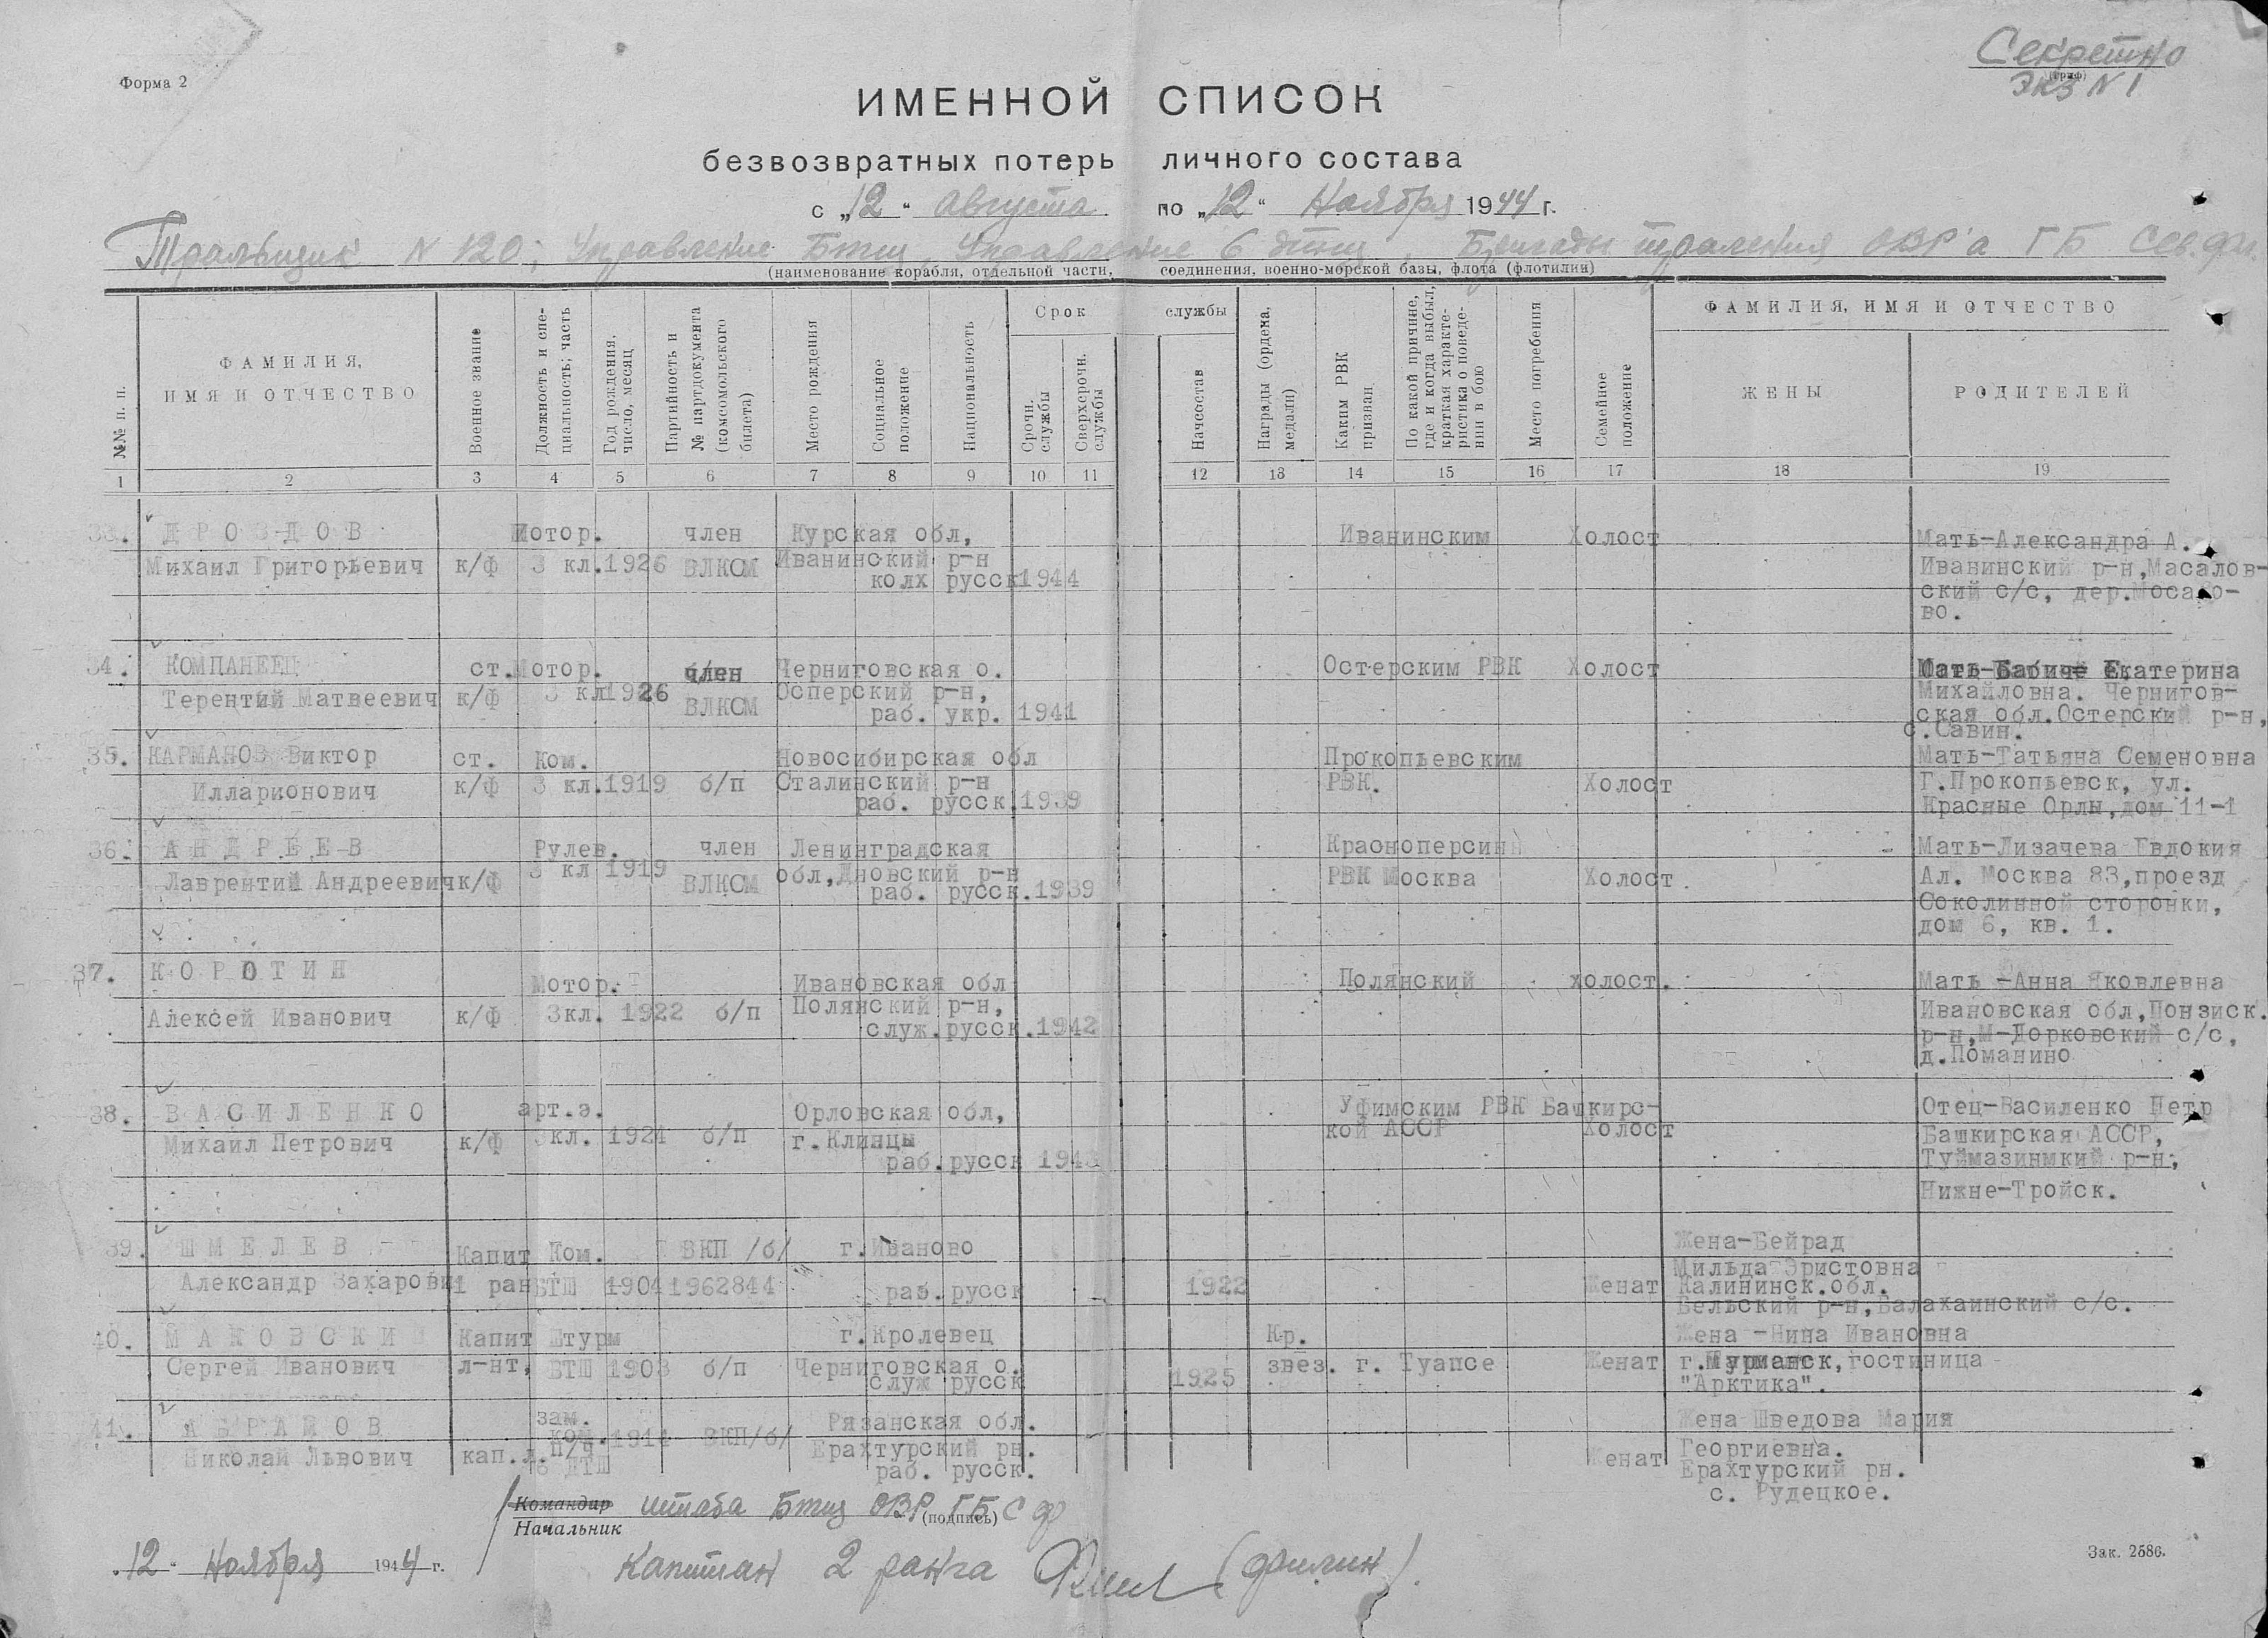 Секретно
(гриф)
Экз N 1
Форма 2
ИМЕННОЙ СПИСОК
безвозвратных потерь личного состава
с „12“ августа по „12“ Ноября 1944 г.
Тральщик N 120; Управление Бтщ, Управление 6 дтщ, Бригады траления ОВР'а ГБ Сев.фл.
(наименование корабля, отдельной части, соединения, военно-морской базы, флота (флотилии)
№№ п. п.
ФАМИЛИЯ,
ИМЯ И ОТЧЕСТВО
Военное звание
Должность и спе-
циальность; часть
Год рождения,
число, месяц
Партийность и
№ партдокумента
(комсомольского
билета)
Место рождения
Социальное
положение
Национальность
Срок службы
Срочн.
службы
Сверхсрочн.
службы
Начсостав
Награды (ордена,
медали)
Каким РВК
призван
По какой причине,
где и когда выбыл,
краткая характе-
ристика о поведе-
нии в бою
Место погребения
Семейное
положение
ФАМИЛИЯ, ИМЯ И ОТЧЕСТВО
ЖЕНЫ
РОДИТЕЛЕЙ
1 2 3 4 5 6 7 8 9 10 11 12 13 14 15 16 17 18 19
33. ДРОЗДОВ Мотор. член Курская обл, Иванинским Холост Мать-Александра А.
Михаил Григорьевич к/ф 3 кл. 1926 ВЛКСМ Иванинский р-н Иванинский р-н,Масалов-
колх русск 1944 ский с/с, дер.Мосало-
во.
34. КОМПАНЕЕЦ ст. Мотор. член Черниговская о. Остерским РВК Холост Мать-Бабич Екатерина
Терентий Матвеевич к/ф 3 кл 1926 ВЛКСМ Осперский р-н, Михайловна. Чернигов-
раб. укр. 1941 ская обл.Остерский р-н,
с.Савин.
35. КАРМАНОВ Виктор ст. Ком. Новосибирская обл Прокопьевским Мать-Татьяна Семеновна
Илларионович к/ф 3 кл. 1919 б/п Сталинский р-н РВК. Холост Г.Прокопьевск, ул.
раб. русск. 1939 Красные Орлы,дом 11-1
36. АНДРЕЕВ Рулев. член Ленинградская Красноперсин Мать-Лизачева Евдокия
Лаврентий Андреевич к/ф 3 кл 1919 ВЛКСМ обл,Дновский р-н РВК Москва Холост Ал. Москва 83,проезд
раб. русск. 1939 Соколинной сторонки,
дом 6, кв. 1.
37. КОРОТИН Мотор. Ивановская обл Полянский холост. Мать -Анна Яковлевна
Алексей Иванович к/ф 3кл. 1922 б/п Полянский р-н, Ивановская обл,Понзиск.
служ. русск. 1942 р-н,М-Дорковский с/с,
д.Поманино
38. ВАСИЛЕНКО арт.э. Орловская обл, Уфимским РВК Башкирс- Отец-Василенко Петр
Михаил Петрович к/ф 3кл. 1924 б/п г.Клинцы кой АССР Холост Башкирская АССР,
раб. русск 1943 Туймазинмкий р-н,
Нижне-Тройск.
39. ШМЕЛЕВ Капит Ком. ВКП /б/ г.Иваново Жена-Бейрад
Александр Захарови 1 ран БТЩ 1904 1962844 Мильда Эристовна
раб. русск 1922 Женат Калининск.обл.
Бельский р-н,Балахаинский с/с.
40. МАКОВСКИЙ Капит Штурм г.Кролевец Кр. Жена -Нина Ивановна
Сергей Иванович л-нт, БТЩ 1903 б/п Черниговская о. звез. г. Туапсе Женат г.Мурманск,гостиница
служ русск 1925 "Арктика".
41. АБРАМОВ зам. Рязанская обл. Жена Шведова Мария
ком. 1914 ВКП/б/
Николай Львович кап.л. п/ч Ерахтурский рн. Женат Георгиевна.
6 ДТЩ раб. русск. Ерахтурский рн.
с. Рудецкое.
Командир
Начальник штаба Бтщ ОВР ГБ Сф
(подпись)
„12“ Ноября 1944 г.
Капитан 2 ранга (Филин).
Зак. 2586.